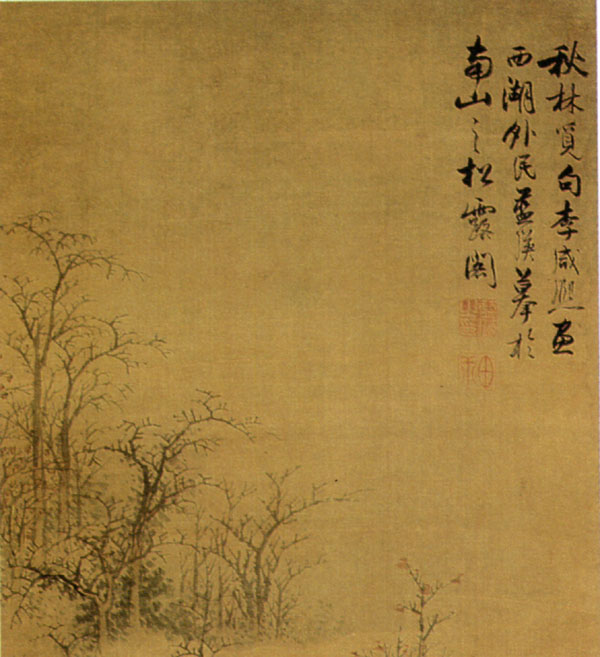 秋林覓句李咸熙畫
西湖外民藍瑛摹於
南山之松露閣